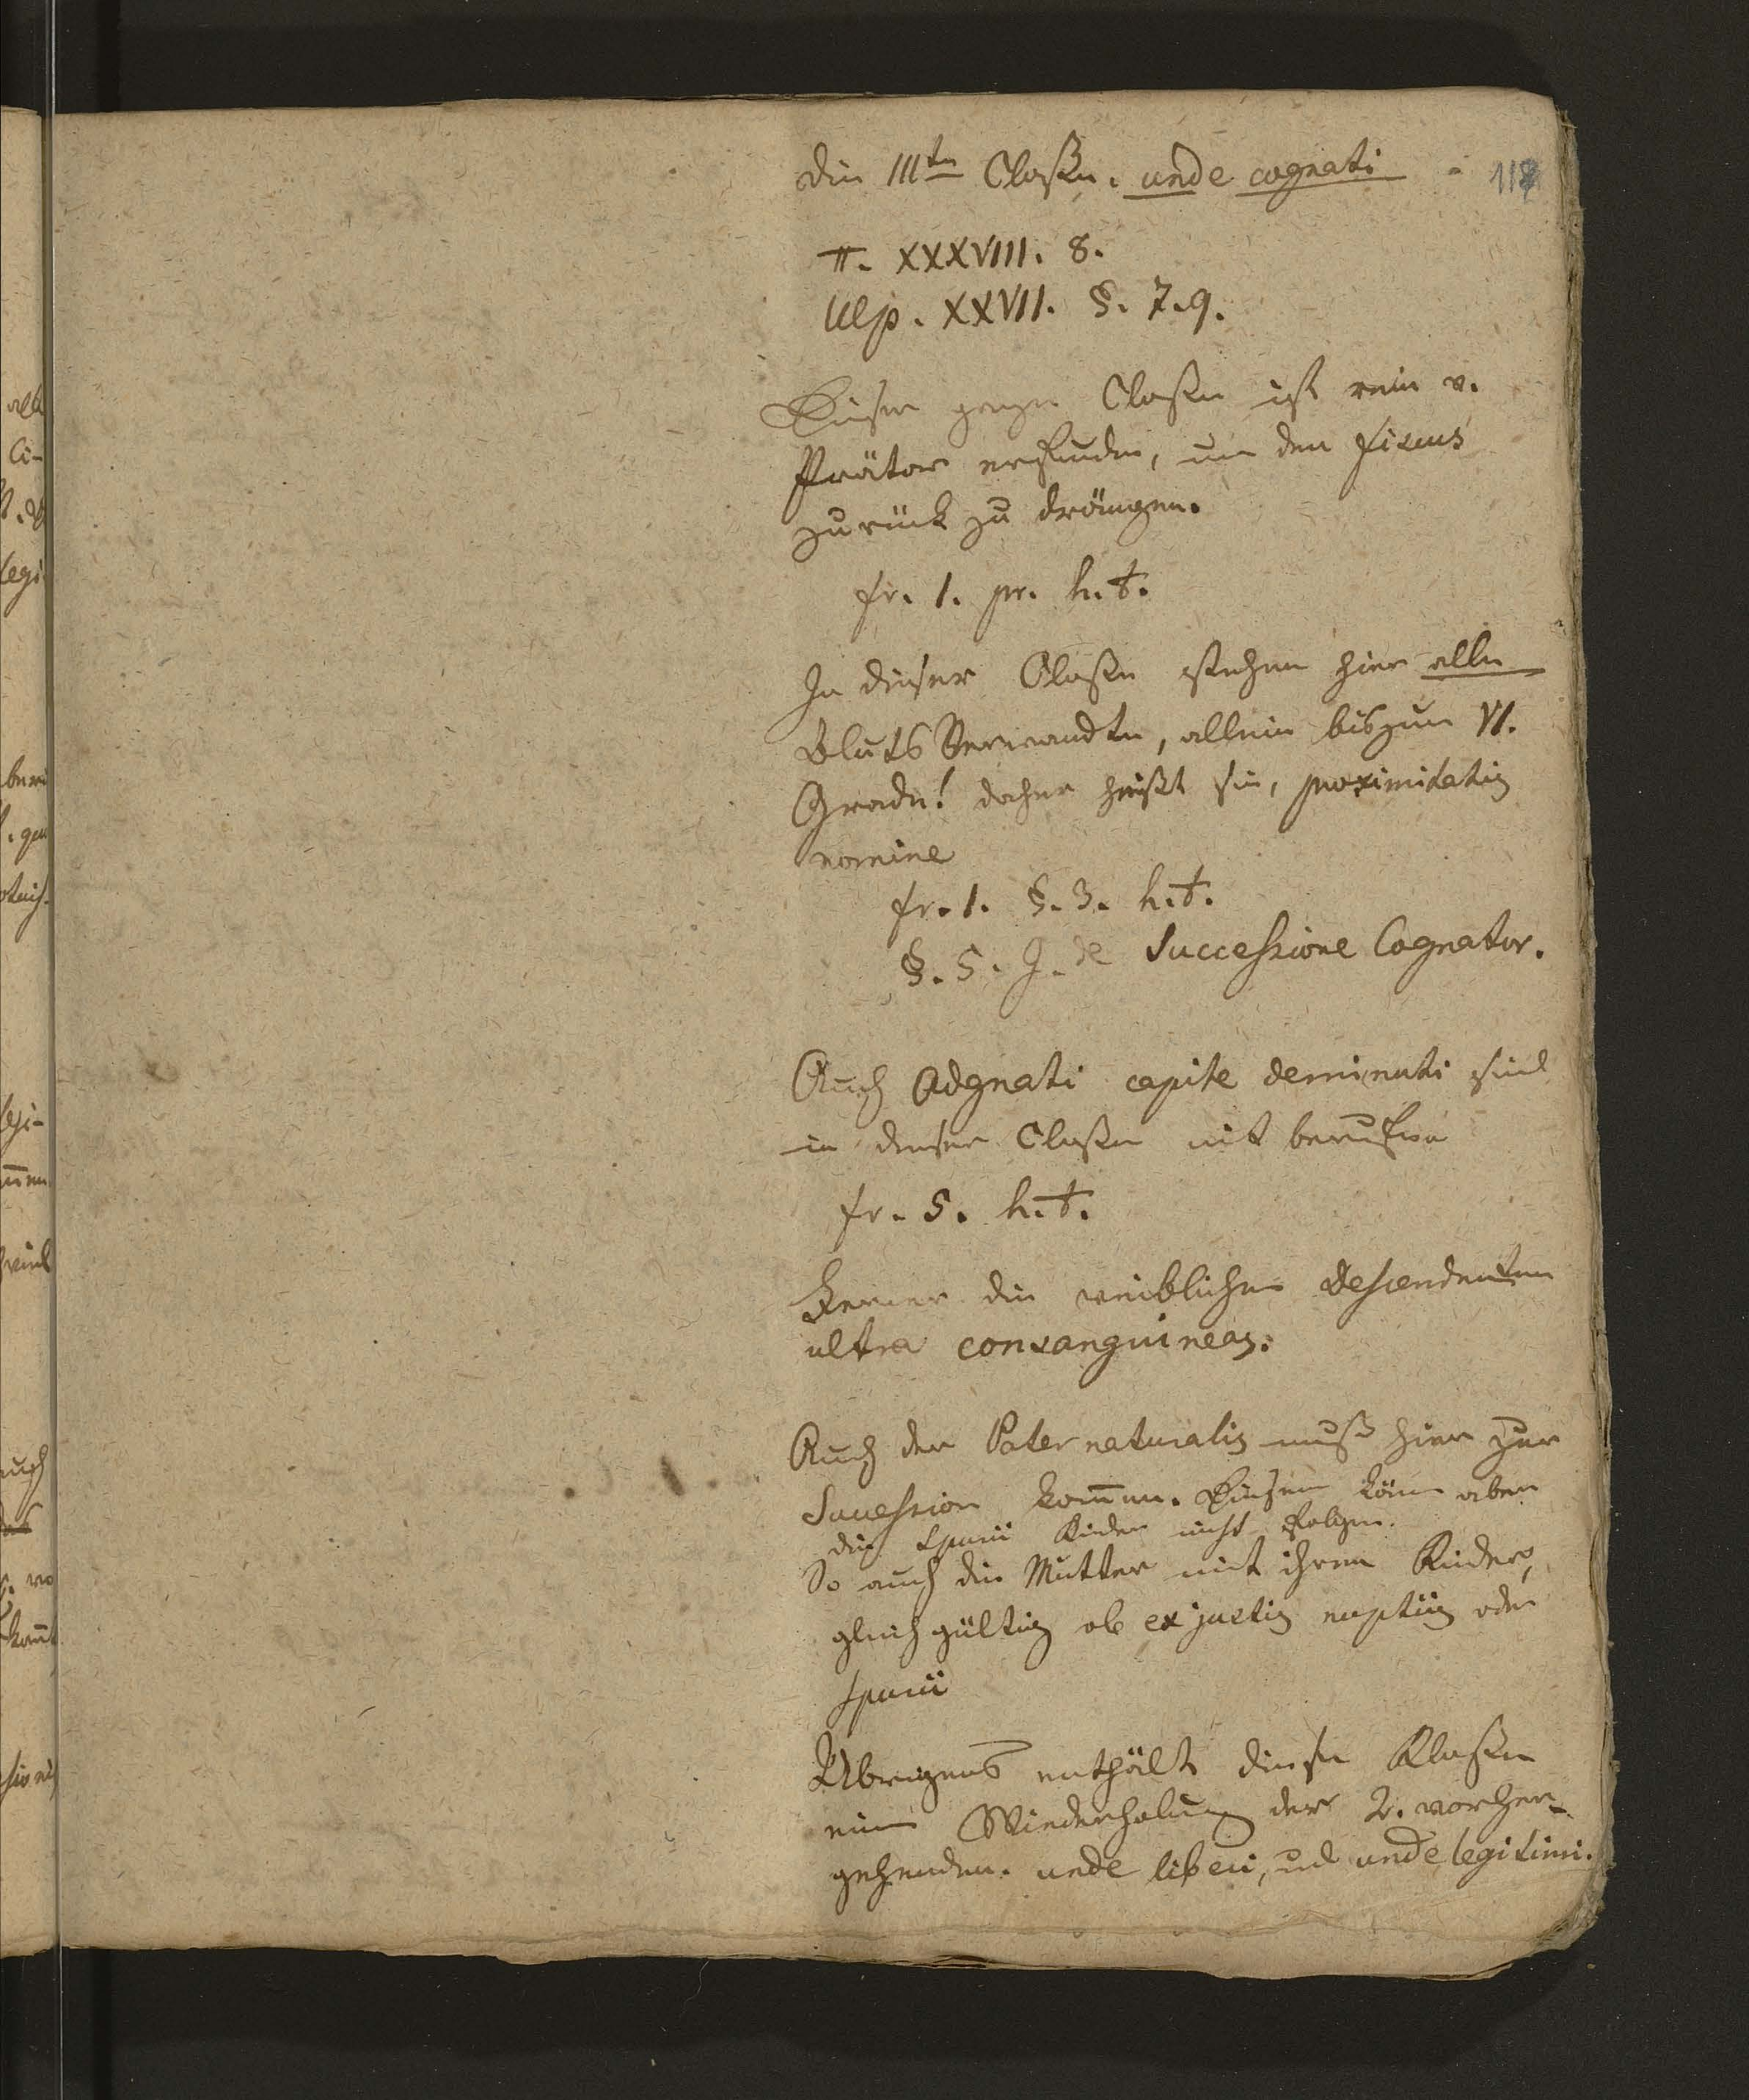 die IIIte Claße. unde cognati
118
π. XXXVIII. 8.
Ulp. XXVII. §. 7.9.
Diese ganze Claße ist rein v.
Prätor erfunden, um den fiscus
zurück zu drängen.
fr. 1. pr. h.t.
In dieser Claße stehen hier alle
BlutsVerwandte, allein bis zum VI.
Grade! daher heißt sie, proximitatis
nomine
fr. 1. §. 3. h.t.
§. 5. J. de Successione Cognator.
Auch Adgnati capite deminuti sind
in dieser Claße mit berufen
fr. 5. h.t.
Ferner die weiblichen Descendenten
ultra consanguineas.
Auch der Pater naturalis muß hier zur
Succession kom̄en. Diesem könn aber
die spurii Kinder nicht folgen.
So auch die Mutter mit ihren Kinder,
gleich gültig ob ex justis nuptiis oder
spurii
Übrigens enthält diese Klaße
eine Wiederholung der 2. vorher-
gehenden. unde liberi, und unde legitimi.